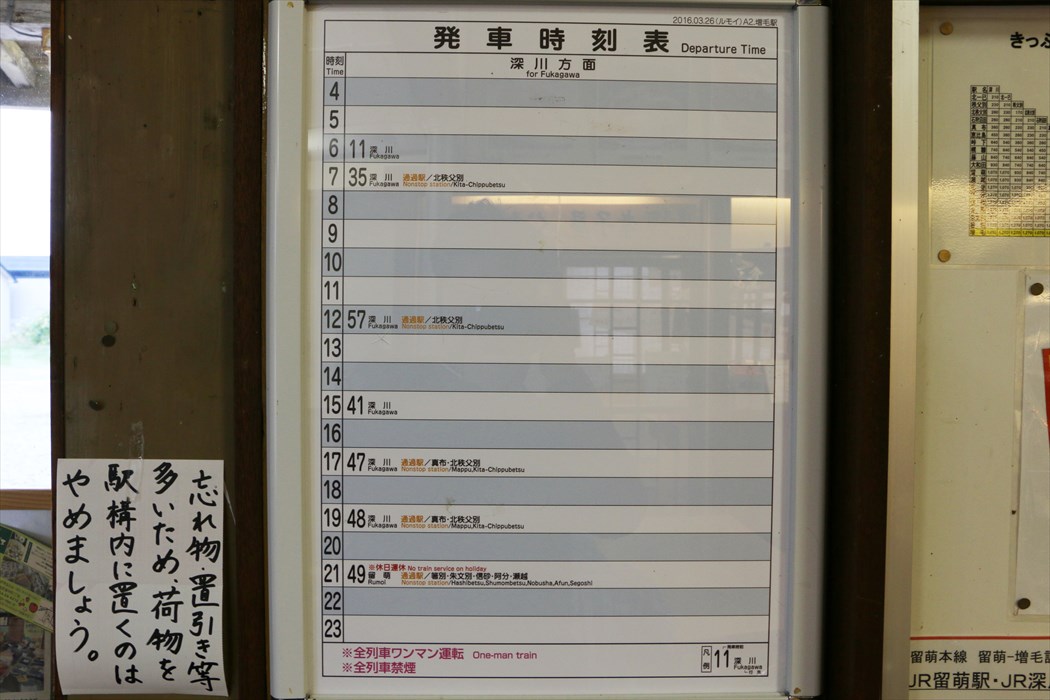 2016.03.26(ルモイ)A2.増毛駅
発車時刻表 Departure Time
時刻
Time
深川方面
for Fukagawa
4
5
6 11 深川
Fukagawa
7 35 深川 通過駅/北秩父別
Fukagawa Nonstop station/Kita-Chippubetsu
8
9
10
11
12 57 深川 通過駅/北秩父別
Fukagawa Nonstop station/Kita-Chippubetsu
13
14
15 41 深川
Fukagawa
16
17 47 深川 通過駅/真布・北秩父別
Fukagawa Nonstop station/Mappu,Kita-Chippubetsu
18
19 48 深川 通過駅/真布・北秩父別
Fukagawa Nonstop station/Mappu,Kita-Chippubetsu
20
※休日運休 No train service on holiday
21 49 留萌 通過駅/箸別・朱文別・信砂・阿分・瀬越
Rumoi Nonstop station/Hashibetsu,Shumombetsu,Nobusha,Afun,Segoshi
22
23
※全列車ワンマン運転 One-man train
※全列車禁煙
凡例 11 深川
Fukagawa
忘れ物・置引き等
多いため、荷物を
駅構内に置くのは
やめましょう。
きっぷ
留萌本線 留萌-増毛
JR留萌駅・JR深